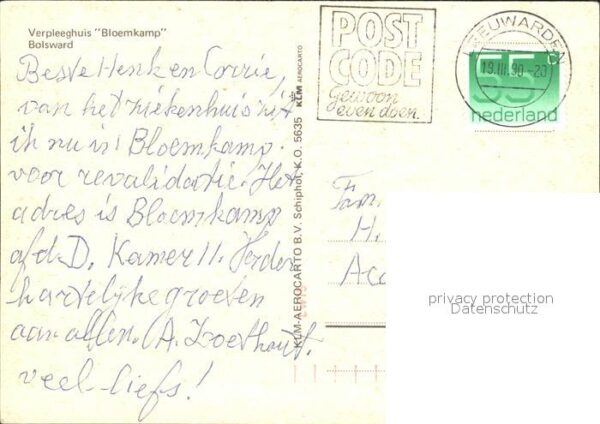 Verpleeghuis "Bloemkamp"
Bolsward
Beste Henk en Corrie,
van het ziekenhuis zit
ik nu in Bloemkamp
voor revalidatie. Het
adres is Bloemkamp
afd. D. Kamer 11. Verder
hartelijke groeten
aan allen. A.
veel liefs!
KLM-AEROCARTO B.V. Schiphol, K.O. 5635 KLM AEROCARTO
POST
CODE
Gewoon
even doen.
LEEUWARDEN
19.III.90-20
55c
nederland
Fam.
H.
Acc
privacy protection
Datenschutz